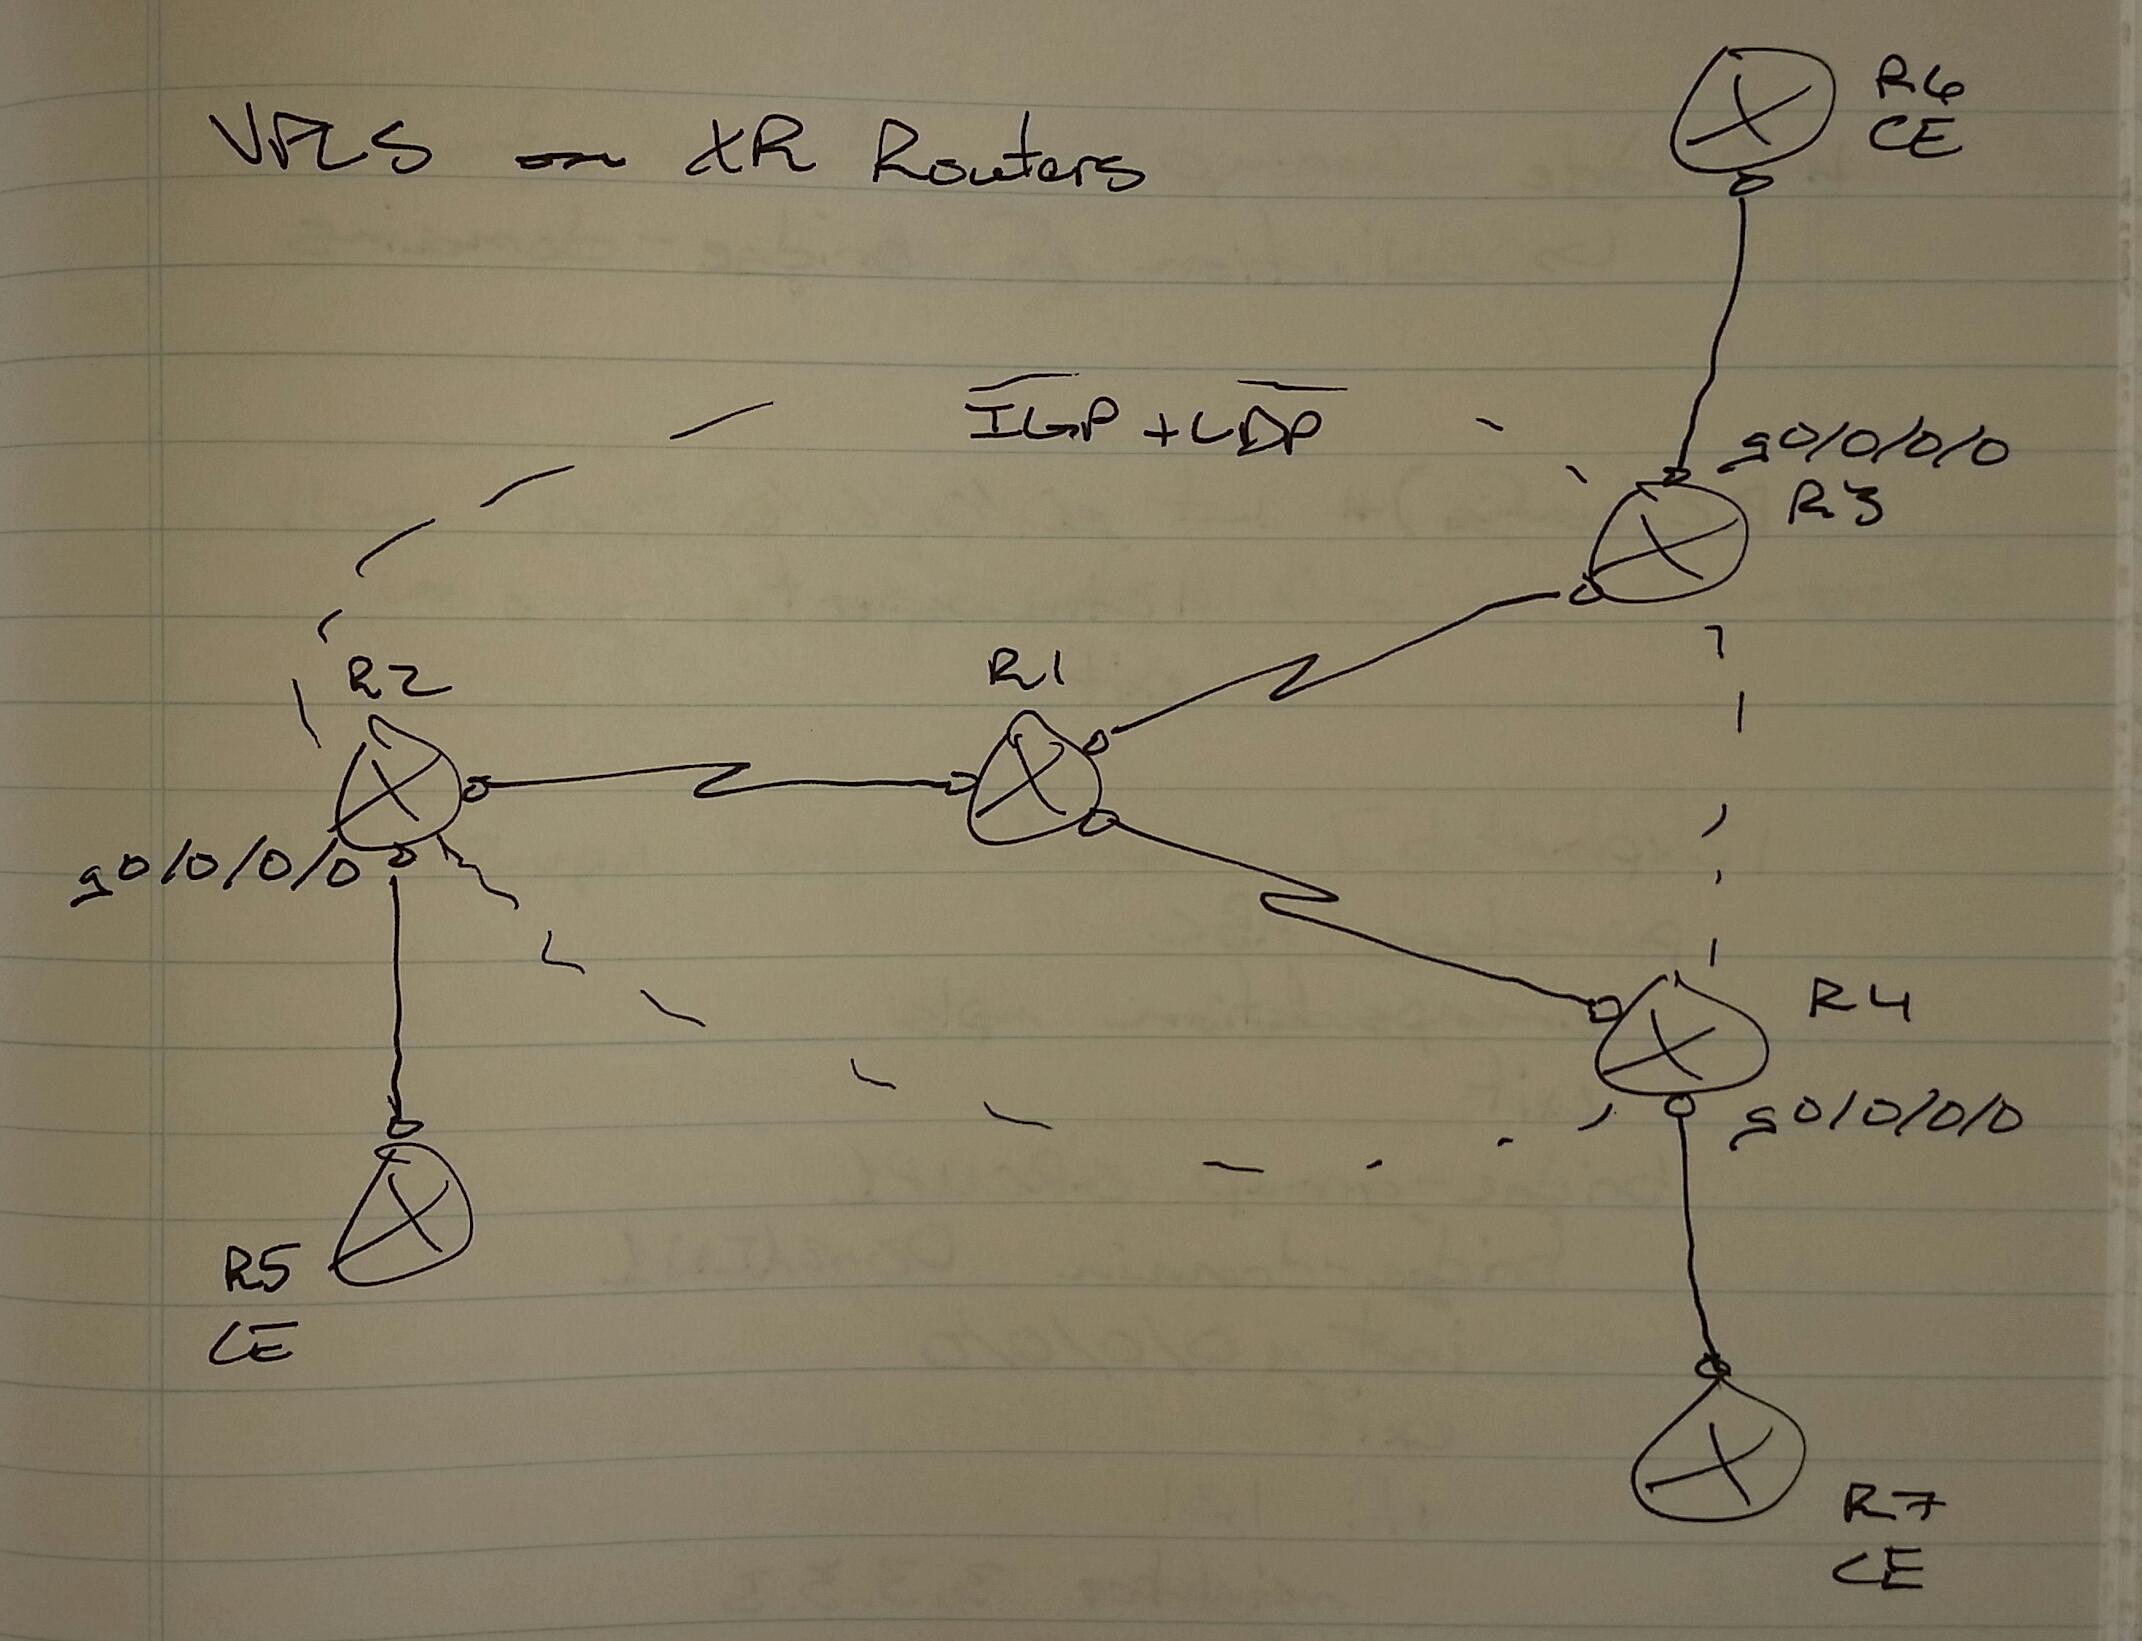 VPLS on XR Routers
R6
CE
IGP + LDP
g0/0/0/0
R3
R2
R1
g0/0/0/0
R4
g0/0/0/0
R5
CE
R7
CE